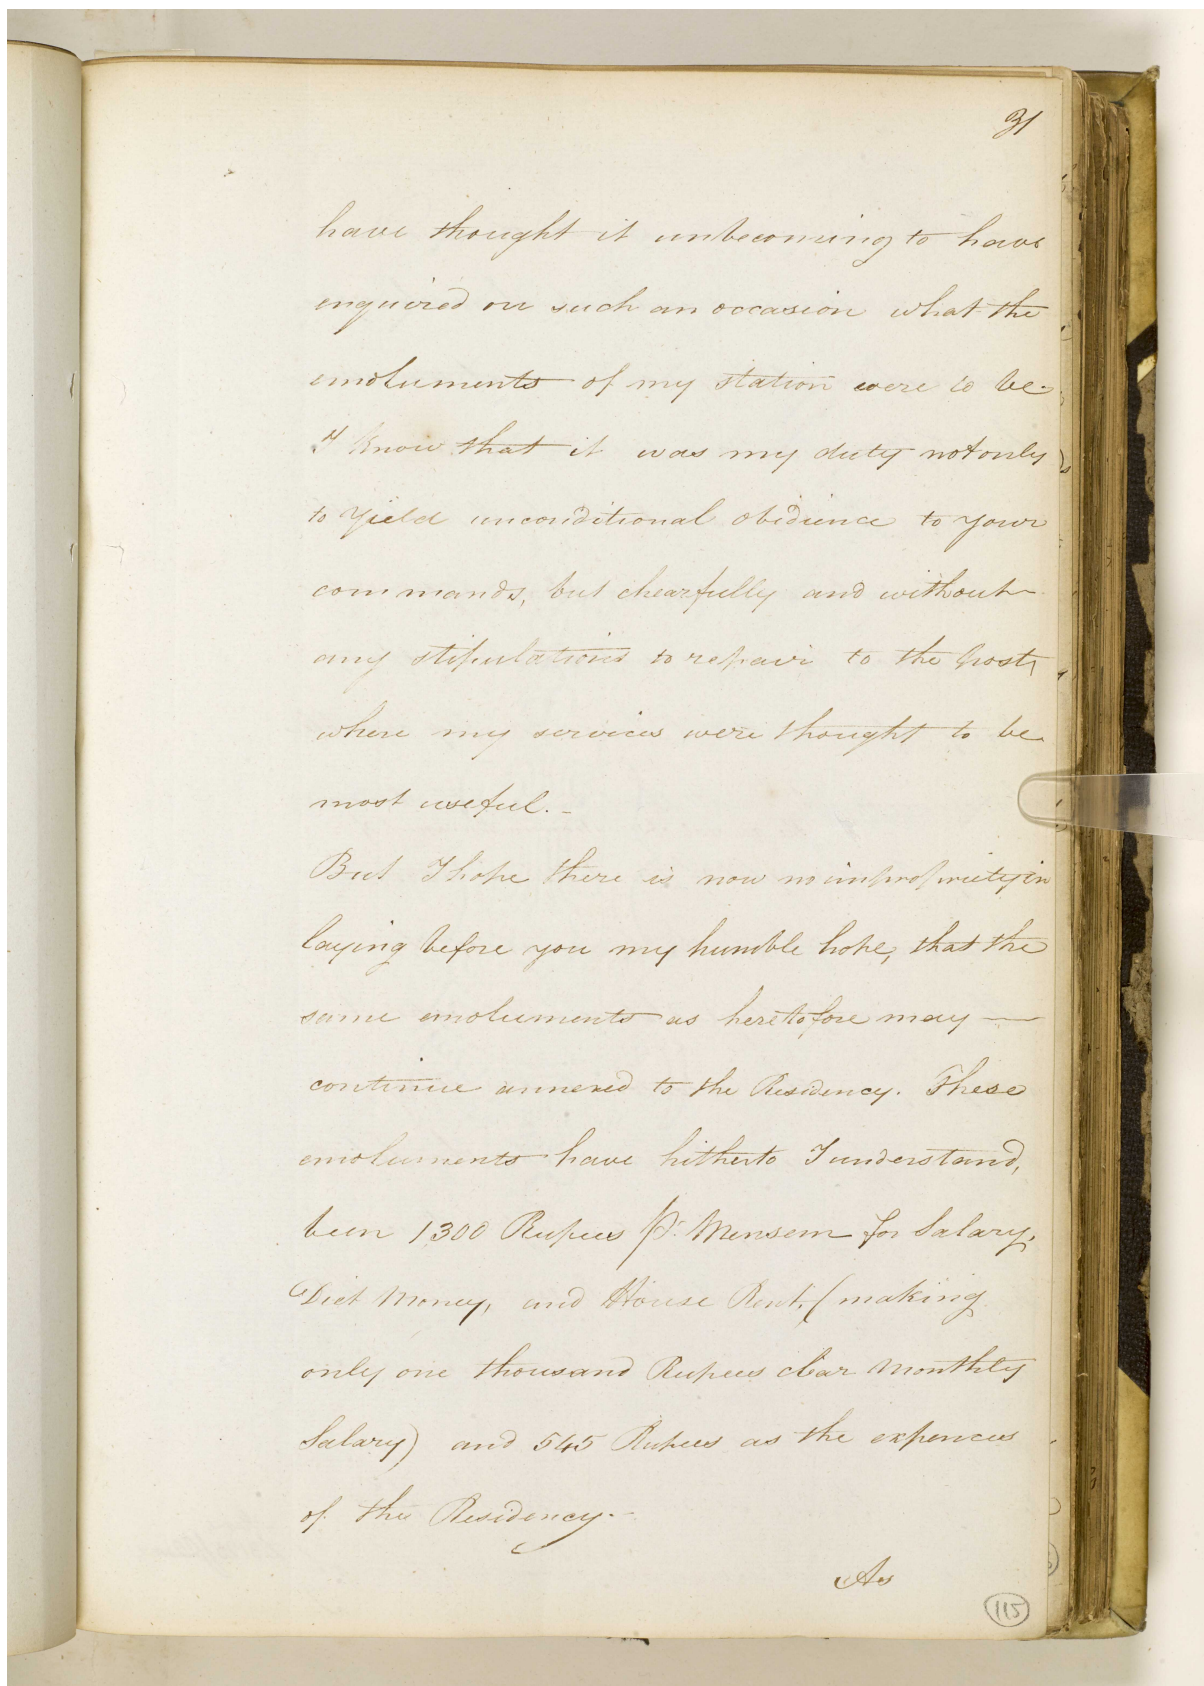 31
have thought it unbecoming to have
enquired on such an occasion what the
emoluments of my station were to be.
I know that it was my duty not only
to Yield unconditional obedience to your
commands, but chearfully and without
any stipulations to repair to the Post,
where my services were thought to be
most useful. -
But I hope there is now no impropriety in
laying before you my humble hope, that the
same emoluments as heretofore may —
continue annexed to the Residency. These
emoluments have hitherto I understand,
been 1300 Rupees P. Mensem for Salary,
Diet Money, and House Rent, (making
only one thousand Rupees clear Monthly
Salary) and 545 Rupees as the expences
of the Residency. -
As
115